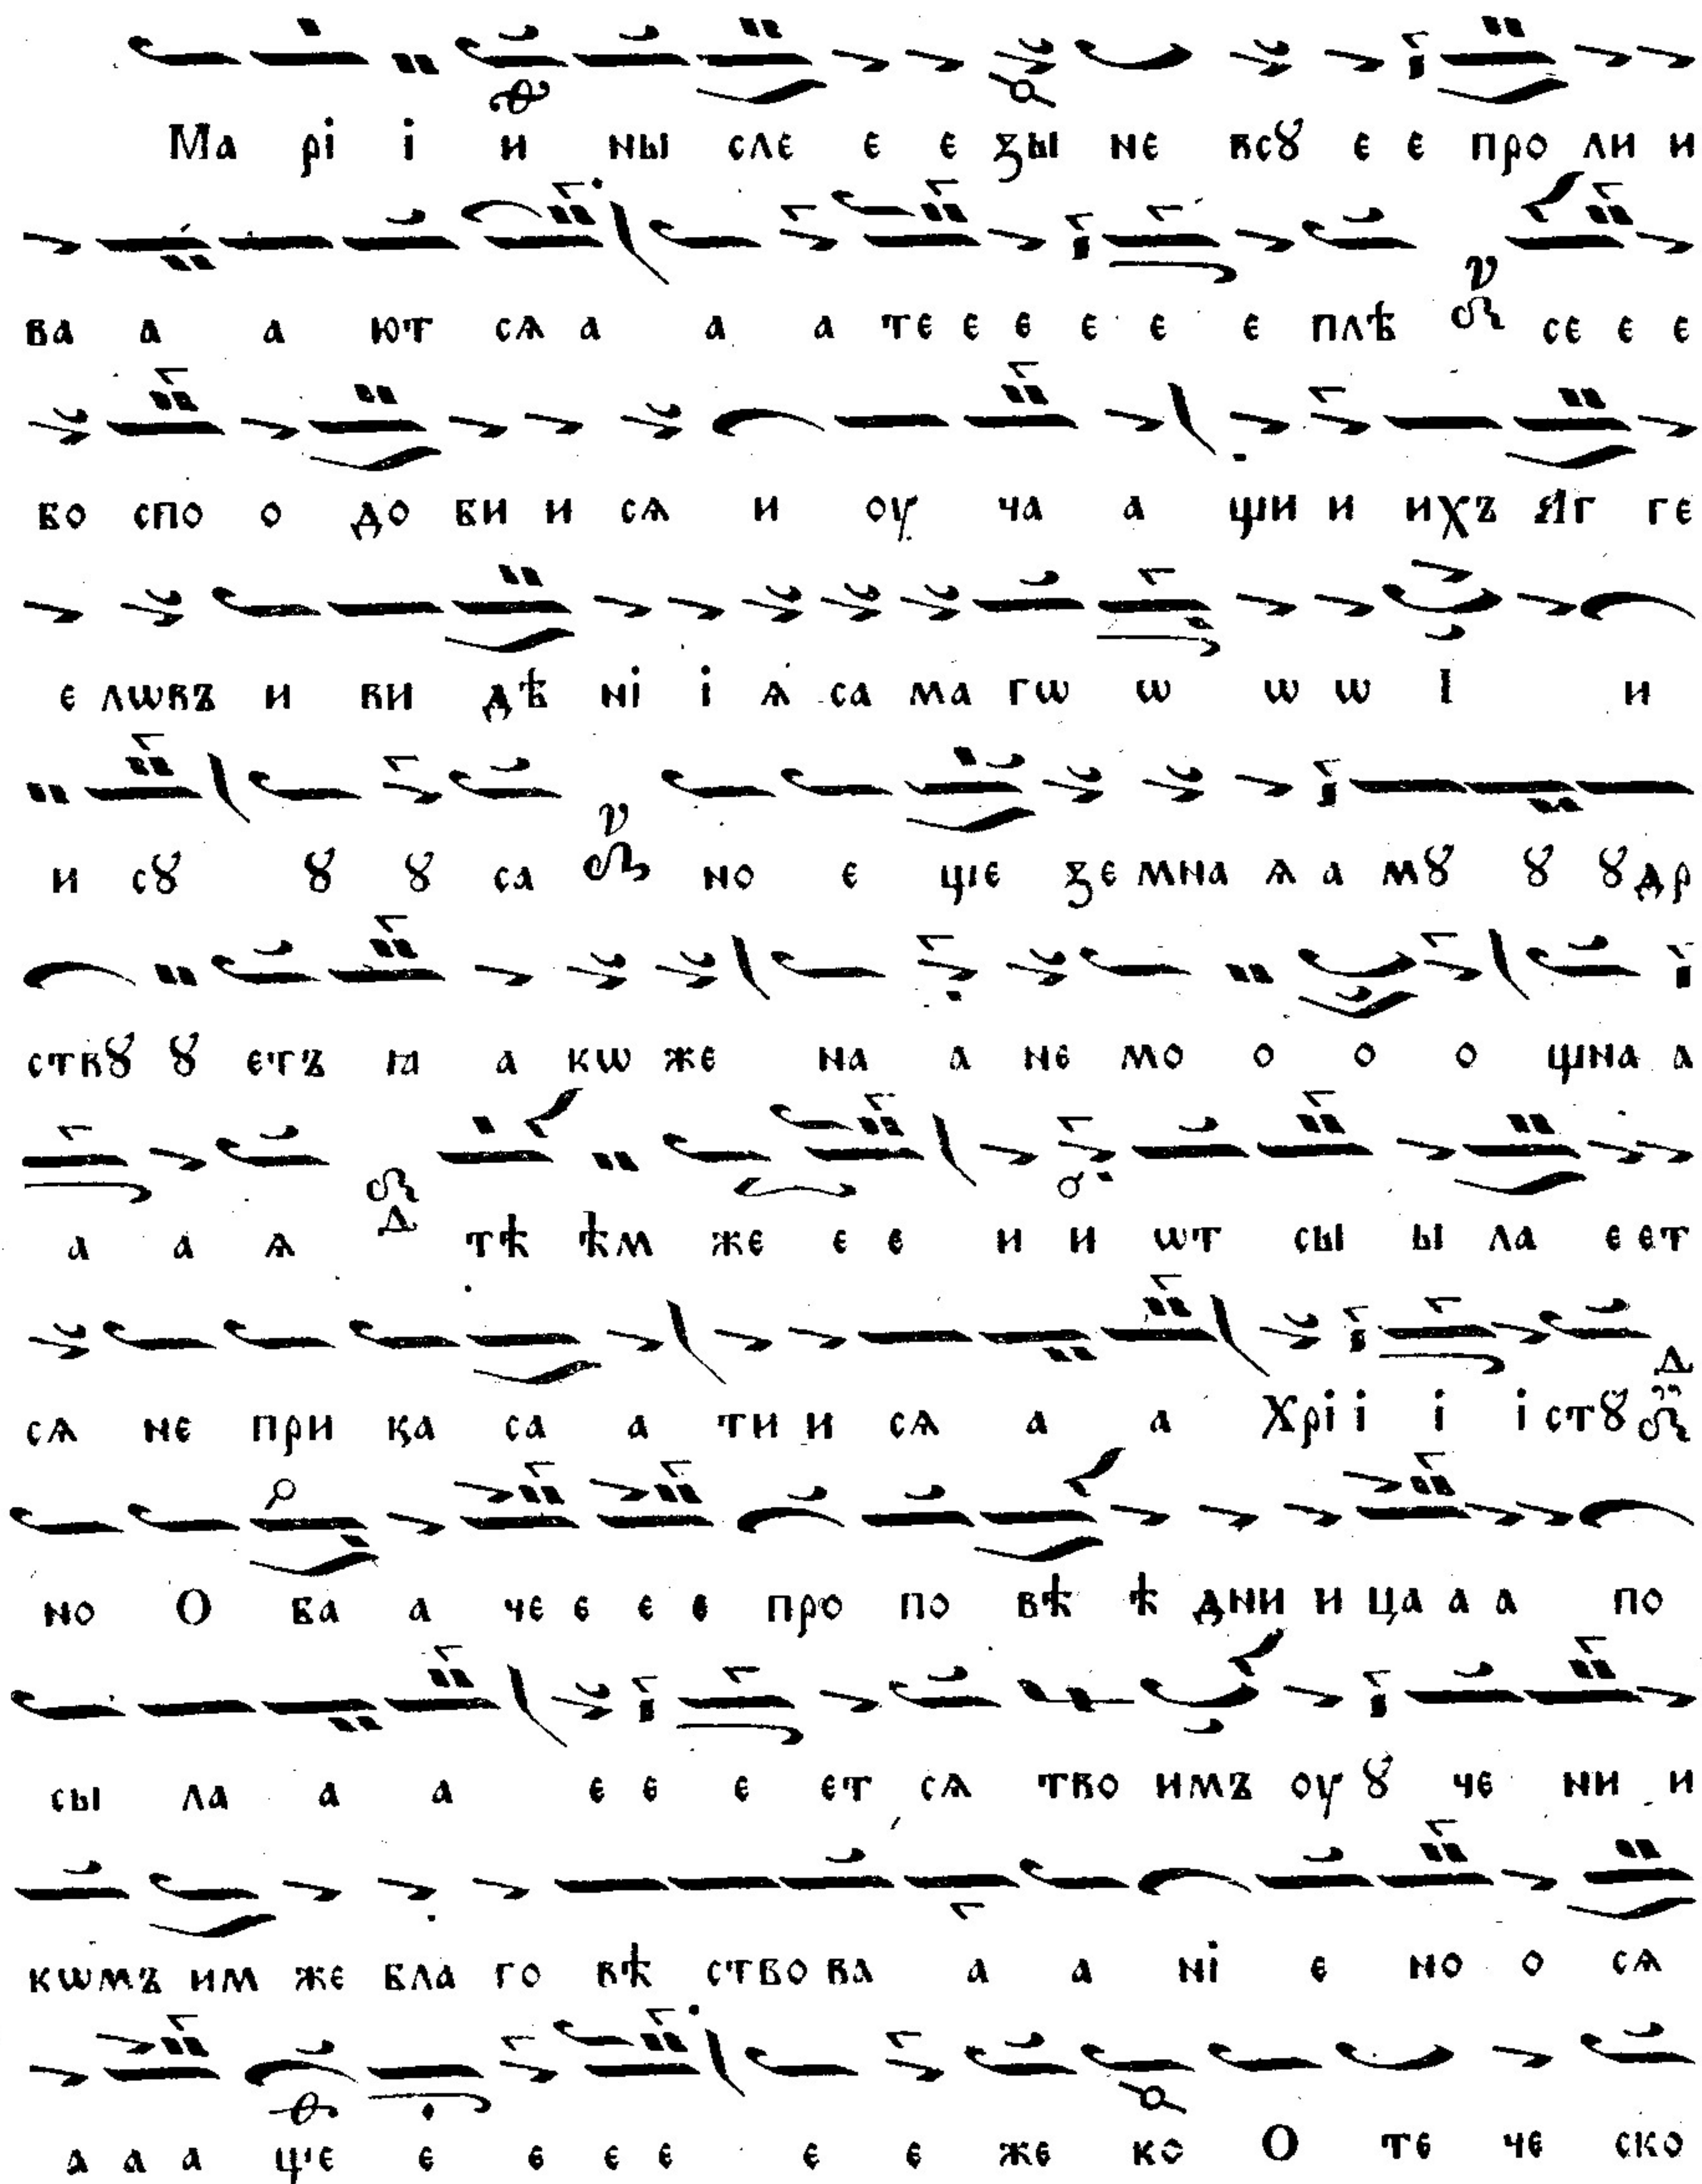 Ма рі і и ны сле е е зы не всꙋ е е про ли и
ва а а ют сѧ а а а те е е е е е плѣ се е е
бо спо о до би и сѧ и оу ча а щи и ихъ Аг ге
е лѡвъ и ви дѣ ні і ѧ са ма гѡ ѡ ѡ ѡ І и
и сꙋ ꙋ ꙋ са но е ще зе мна ѧ а мꙋ ꙋ ꙋдр
ствꙋ ꙋ етъ ꙗ а кѡ же на а не мо о о о щна а
а а ѧ тѣ ѣм же е е и и ѡт сы ы ла е ет
сѧ не при ка са а ти и сѧ а а Хрі і і і стꙋ
но О ба а че е е е про по вѣ ѣ дни и ца а а по
сы ла а а е е е ет сѧ тво имъ оу ꙋ че ни и
кѡмъ им же бла го вѣ ство ва а а ні е но о сѧ
а а а ще е е е е е е же ко О те че ско